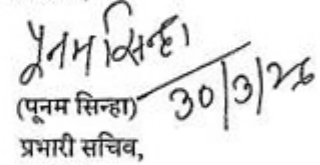 पूनम सिन्हा
30/3/26
(पूनम सिन्हा)
प्रभारी सचिव,